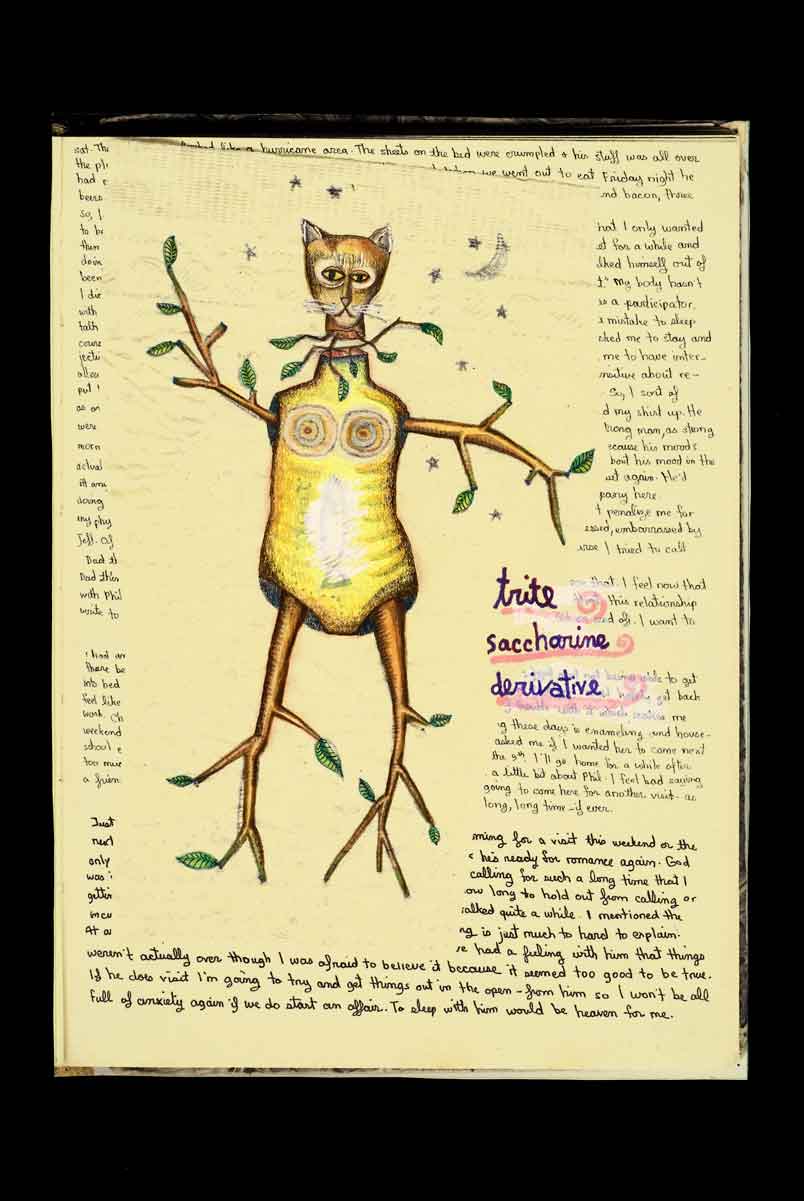 sat. The looked like a hurricane area. The sheets on the bed were crumpled + his stuff was all over
the pl we went out to eat Friday night he
had nd bacon, three
beers
so, I hat I only wanted
to be st for a while and
then lked himself out of
doin t." My body hasn't
been is a participator.
I die a mistake to sleep
with cked me to stay and
talk me to have inter-
course about re-
jectio So, I sort of
allow d my shirt up. He
put trong man, as strong
as an because his moods
were bout his mood in the
morn et again. He'd
actual pany here.
it am t penalize me for
doing essed, embarrassed by
my phy urse I tried to call
Jeff. Of
Dad th ow that. I feel now that
Dad then this relationship
with Phil ed of. I want to
write to
trite
saccharine
derivative
I had an to get
there be get back
into bed me
feel like g these days is enameling and house-
work. Ch asked me if I wanted her to come next
weekend the 9th. I'll go home for a while after
school e a little bit about Phil. I feel bad saying
too muc going to come here for another visit - as
a frien long, long time - if ever.
Just ming for a visit this weekend or the
next he's ready for romance again. God
only calling for such a long time that I
was ow long to hold out from calling or
gettin alked quite a while. I mentioned the
incu ng is just much to hard to explain.
At a e had a feeling with him that things
weren't actually over though I was afraid to believe it because it seemed too good to be true.
If he does visit I'm going to try and get things out in the open - from him so I won't be all
full of anxiety again if we do start an affair. To sleep with him would be heaven for me.